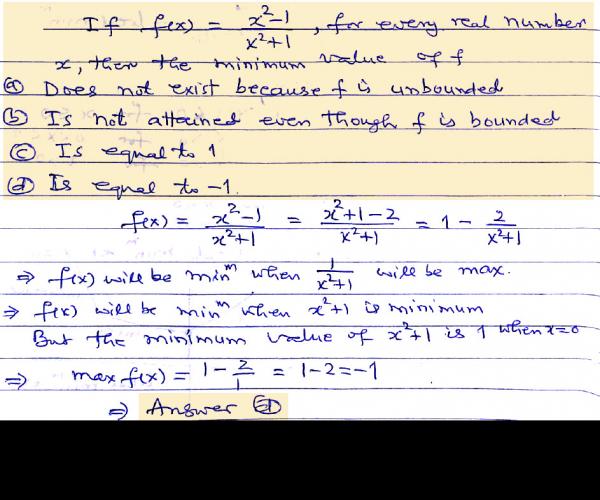 If f(x) = x²-1 / x²+1, for every real number
x, then the minimum value of f
(a) Does not exist because f is unbounded
(b) Is not attained even though f is bounded
(c) Is equal to 1
(d) Is equal to -1.
f(x) = x²-1 / x²+1 = x²+1-2 / x²+1 = 1 - 2 / x²+1
⇒ f(x) will be minᵐ when 1 / x²+1 will be max.
⇒ f(x) will be minᵐ when x²+1 is minimum
But the minimum value of x²+1 is 1 when x=0
⇒ max f(x) = 1 - 2/1 = 1-2 = -1
⇒ Answer (d)